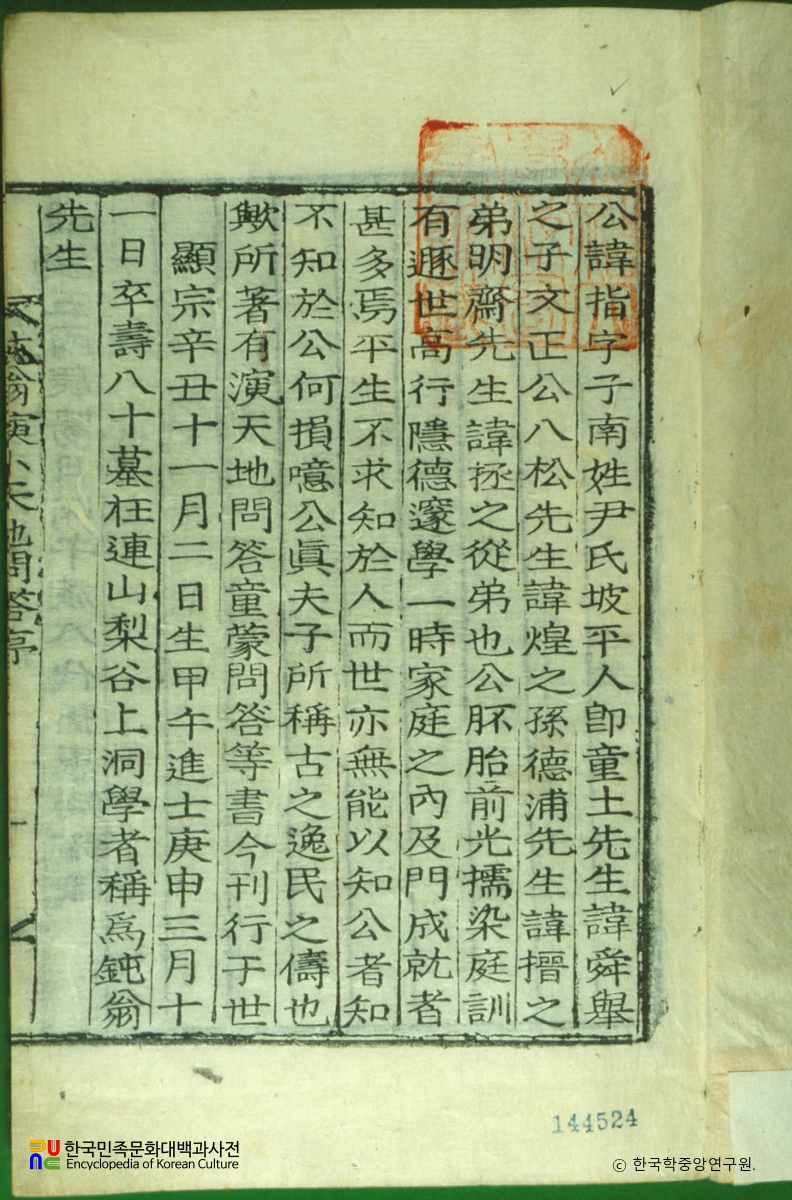 公諱指字子南姓尹氏坡平人卽童土先生諱舜擧
之子文正公八松先生諱煌之孫德浦先生諱搢之
弟明齋先生諱拯之從弟也公胚胎前光擩染庭訓
有遯世高行隱德邃學一時家庭之內及門成就者
甚多焉平生不求知於人而世亦無能以知公者知
不知於公何損噫公眞夫子所稱古之逸民之儔也
歟所著有演天地問答童蒙問答等書今刊行于世
顯宗辛丑十一月二日生甲午進士庚申三月十
一日卒壽八十墓在連山梨谷上洞學者稱爲鈍翁
先生
翁演 天地問答序
一
144524
한국민족문화대백과사전
Encyclopedia of Korean Culture
ⓒ 한국학중앙연구원.